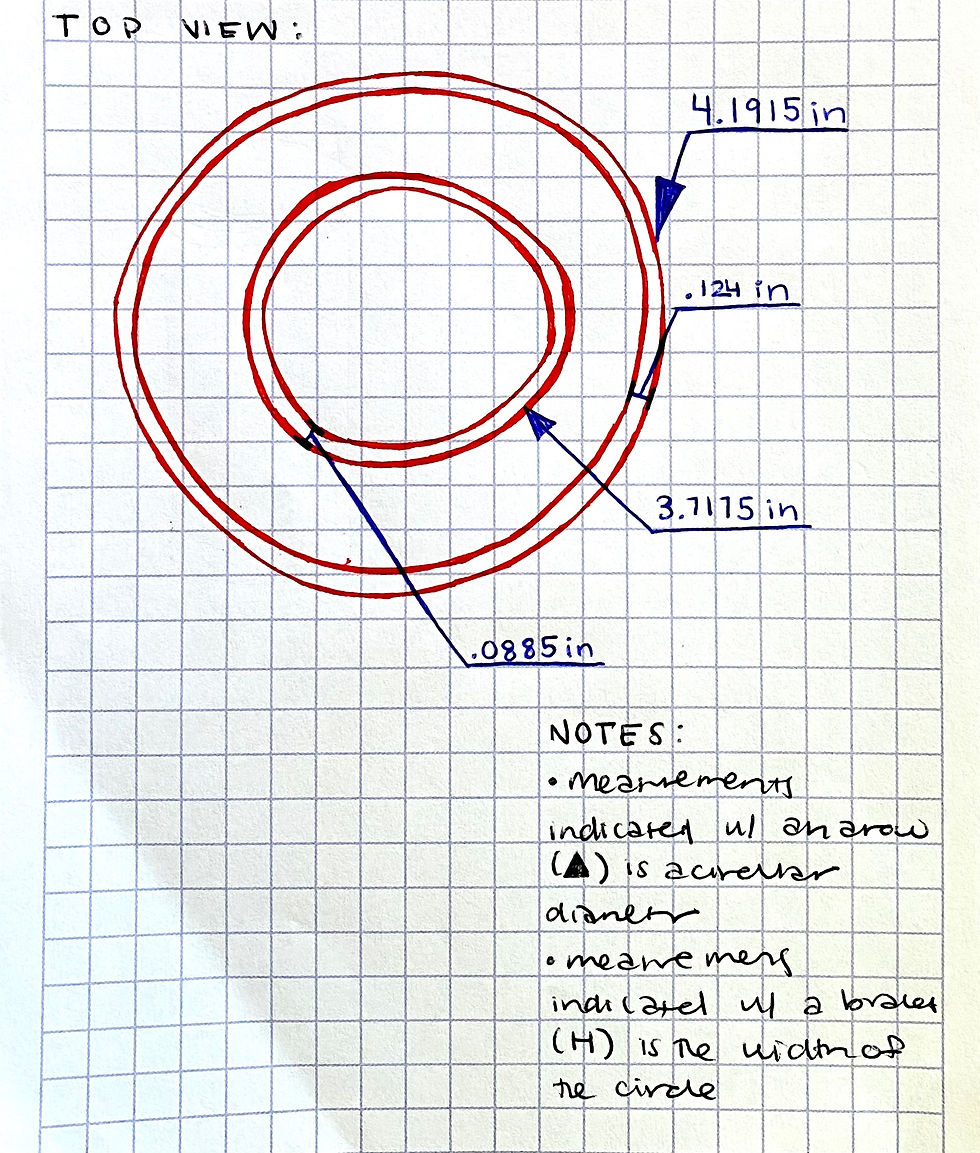 TOP VIEW:
4.1915 in
.124 in
3.7175 in
.0885 in
NOTES:
• measurements
indicated w/ an arow
(▲) is a circular
diameter
• measurements
indicated w/ a bracket
(H) is the width of
the circle